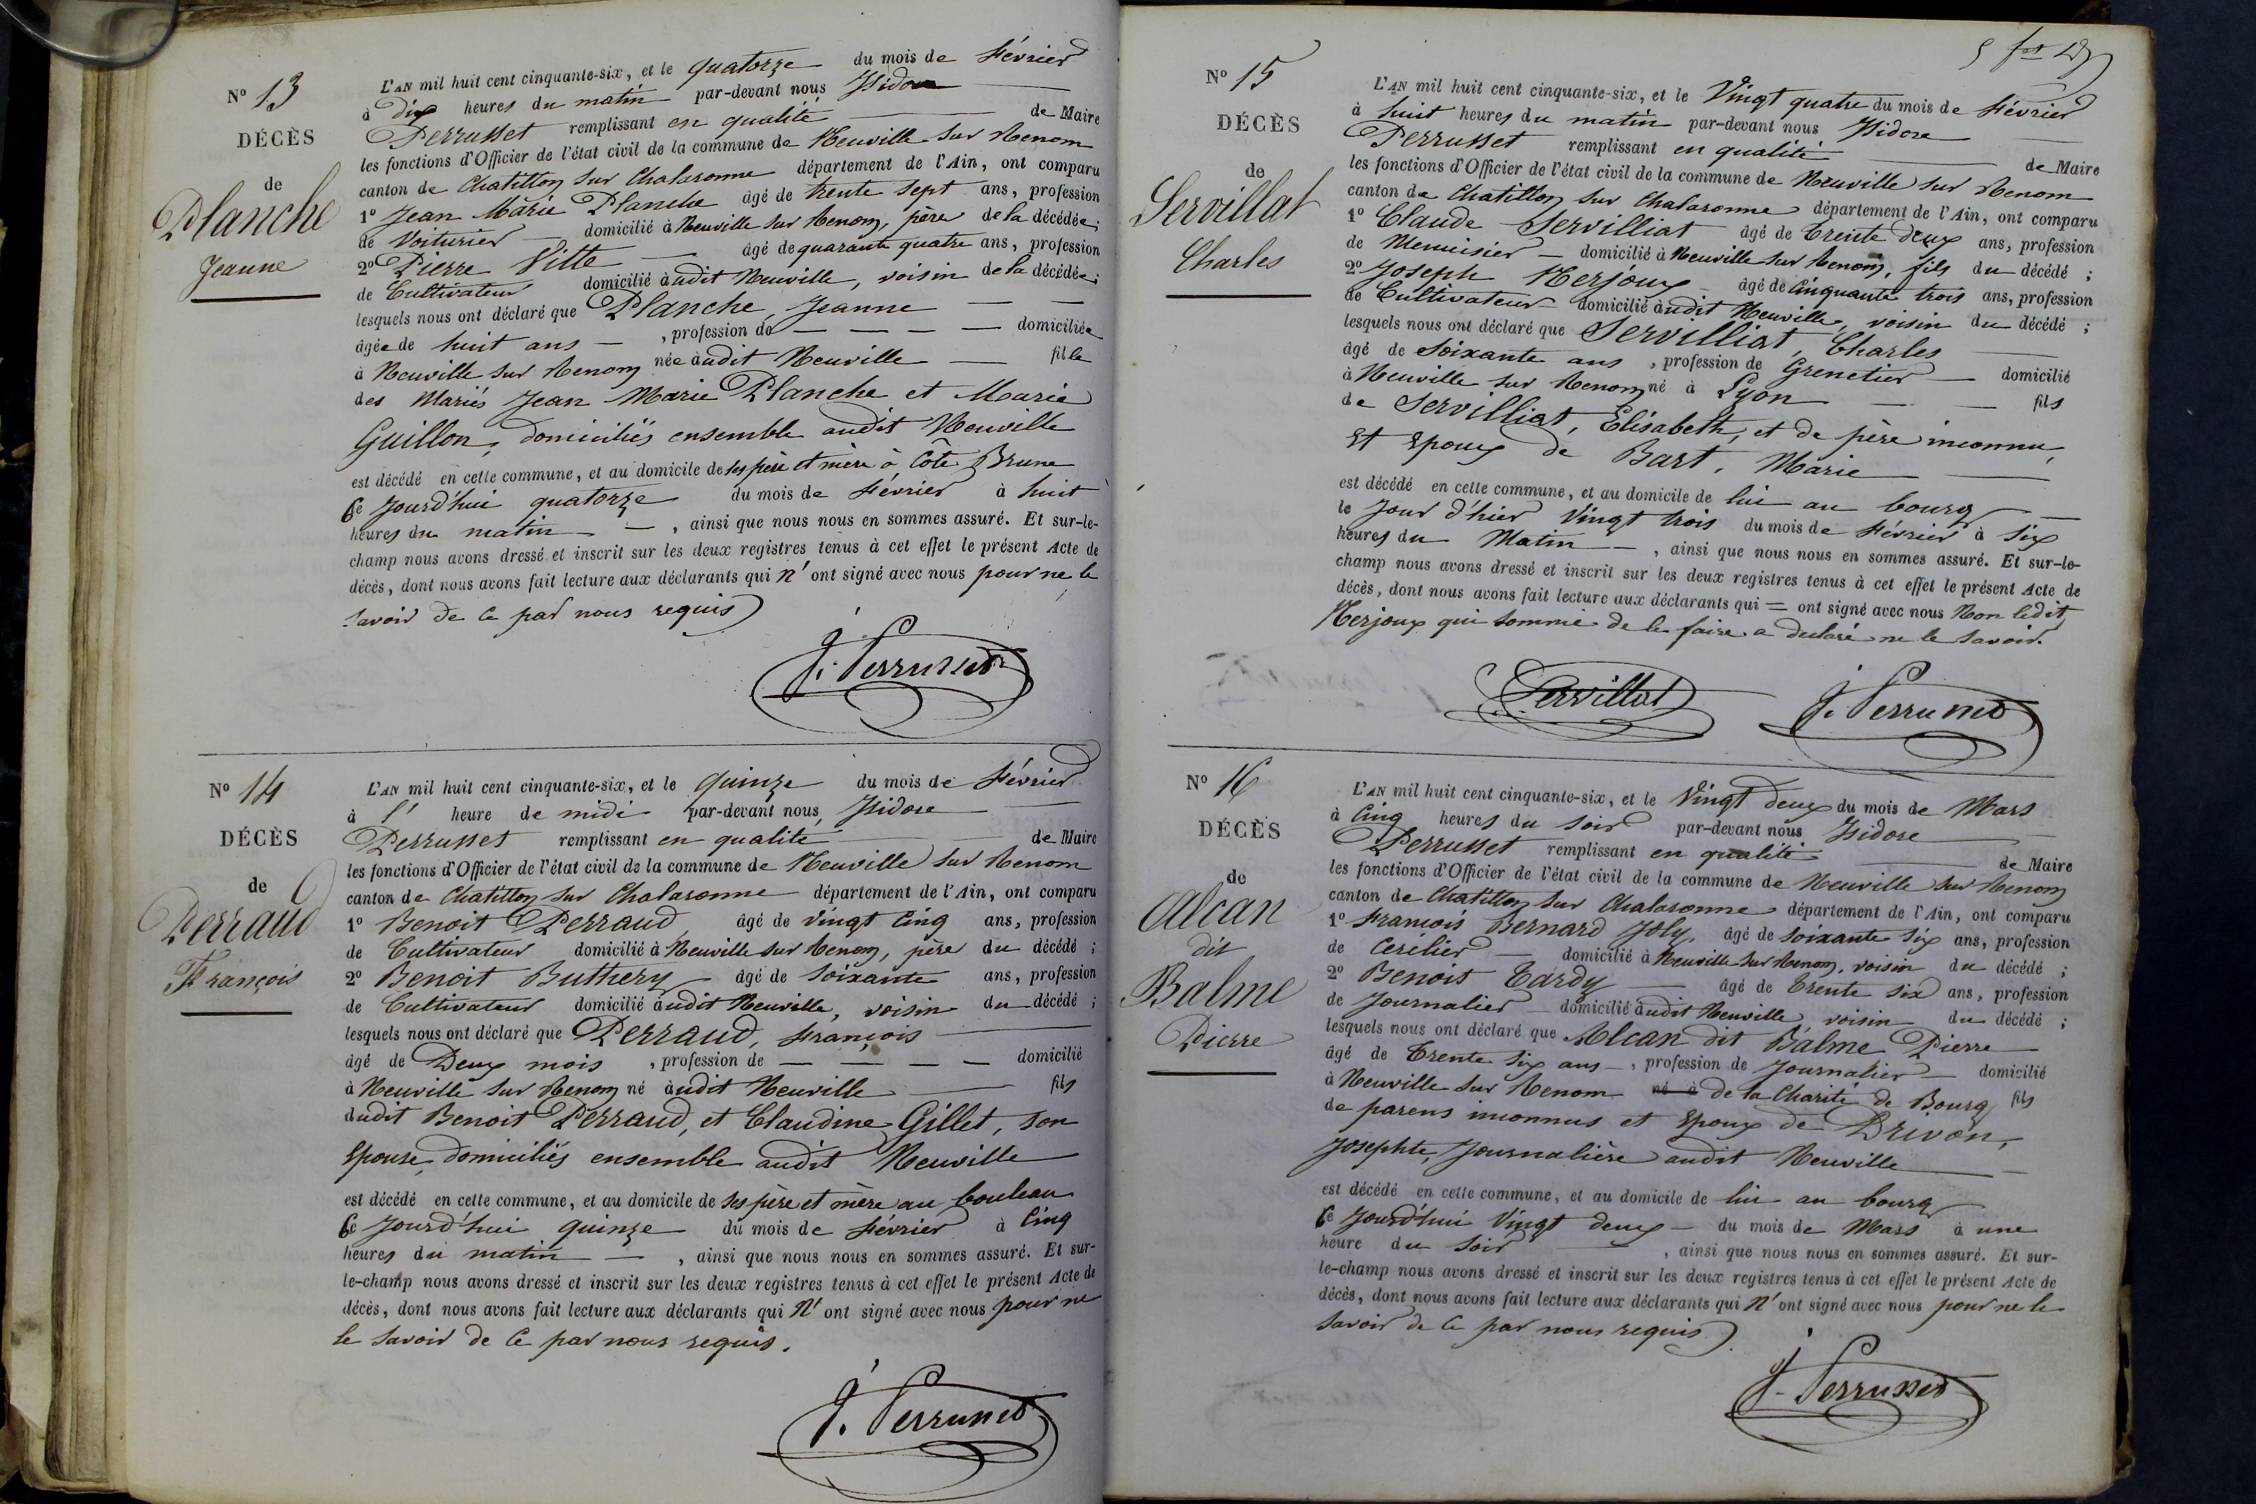 N° 13
DÉCÈS
de
Planche
Jeanne
L'AN mil huit cent cinquante-six, et le quatorze du mois de Février
à dix heures du matin par-devant nous Isidore
Perrusset remplissant en qualité de Maire
les fonctions d'Officier de l'état civil de la commune de Neuville sur Renom
canton de Chatillon sur Chalaronne département de l'Ain, ont comparu
1° Jean Marie Planche âgé de trente sept ans, profession
de Voiturier domicilié à Neuville sur Renom, père de la décédée;
2° Pierre Vitte âgé de quarante quatre ans, profession
de Cultivateur domicilié audit Neuville, voisin de la décédée;
lesquels nous ont déclaré que Planche, Jeanne
âgée de huit ans, profession de domiciliée
à Neuville sur Renom née audit Neuville fille
des Mariés Jean Marie Planche et Marie
Guillon, domiciliés ensemble audit Neuville
est décédé en cette commune, et au domicile de ses père et mère à Côte Brune
Ce jourd'hui quatorze du mois de Février à huit
heures du matin, ainsi que nous nous en sommes assuré. Et sur-le-
champ nous avons dressé et inscrit sur les deux registres tenus à cet effet le présent Acte de
décès, dont nous avons fait lecture aux déclarants qui n'ont signé avec nous pour ne le
savoir de ce par nous requis
J. Perrusset
N° 14
DÉCÈS
de
Perraud
François
L'AN mil huit cent cinquante-six, et le quinze du mois de Février
à l' heure de midi par-devant nous, Isidore
Perrusset remplissant en qualité de Maire
les fonctions d'Officier de l'état civil de la commune de Neuville sur Renom
canton de Chatillon sur Chalaronne département de l'Ain, ont comparu
1° Benoit Perraud âgé de vingt cinq ans, profession
de Cultivateur domicilié à Neuville sur Renom, père du décédé;
2° Benoit Buthery âgé de soixante ans, profession
de Cultivateur domicilié audit Neuville, voisin du décédé;
lesquels nous ont déclaré que Perraud, François
âgé de Deux mois, profession de domicilié
à Neuville sur Renom né audit Neuville fils
dudit Benoit Perraud, et Claudine Gillet, son
Epouse, domiciliés ensemble audit Neuville
est décédé en cette commune, et au domicile de ses père et mère au bouleau
Ce jourd'hui quinze du mois de Février à Cinq
heures du matin, ainsi que nous nous en sommes assuré. Et sur-
le-champ nous avons dressé et inscrit sur les deux registres tenus à cet effet le présent Acte de
décès, dont nous avons fait lecture aux déclarants qui n'ont signé avec nous pour ne
le savoir de ce par nous requis.
J. Perrusset
N° 15
DÉCÈS
de
Servillat
Charles
L'AN mil huit cent cinquante-six, et le Vingt quatre du mois de Février
à huit heures du matin par-devant nous Isidore
Perrusset remplissant en qualité de Maire
les fonctions d'Officier de l'état civil de la commune de Neuville sur Renom
canton de Chatillon sur Chalaronne département de l'Ain, ont comparu
1° Claude Servilliat âgé de Trente deux ans, profession
de Menuisier domicilié à Neuville sur Renom, fils du décédé;
2° Joseph Merjoux âgé de cinquante trois ans, profession
de Cultivateur domicilié audit Neuville, voisin du décédé;
lesquels nous ont déclaré que Servilliat, Charles
âgé de soixante ans, profession de Grenetier domicilié
à Neuville sur Renom né à Lyon fils
de Servilliat, Elisabeth, et de père inconnu,
Et Epoux de Bart, Marie
est décédé en cette commune, et au domicile de lui au bourg
le jour d'hier Vingt trois du mois de Février à six
heures du Matin, ainsi que nous nous en sommes assuré. Et sur-le-
champ nous avons dressé et inscrit sur les deux registres tenus à cet effet le présent Acte de
décès, dont nous avons fait lecture aux déclarants qui = ont signé avec nous Non ledit
Merjoux qui sommé de le faire a declaré ne le savoir.
Servillat J. Perrusset
N° 16
DÉCÈS
de
Alcan
dit
Balme
Pierre
L'AN mil huit cent cinquante-six, et le Vingt deux du mois de Mars
à Cinq heures du soir par-devant nous Isidore
Perrusset remplissant en qualité de Maire
les fonctions d'Officier de l'état civil de la commune de Neuville sur Renom
canton de Chatillon sur Chalaronne département de l'Ain, ont comparu
1° François Bernard Joly, âgé de soixante six ans, profession
de Cerclier domicilié à Neuville sur Renom, voisin du décédé;
2° Benoit Tardy âgé de Trente six ans, profession
de Journalier domicilié audit Neuville voisin du décédé;
lesquels nous ont déclaré que Alcan dit Balme Pierre
âgé de Trente six ans, profession de Journalier domicilié
à Neuville sur Renom né à de la Charité de Bourg fils
de parens inconnus et Epoux de Drivon,
Josephte, Journalière audit Neuville
est décédé en cette commune, et au domicile de lui au bourg
Ce jourd'hui Vingt deux du mois de Mars à une
heure du soir, ainsi que nous nous en sommes assuré. Et sur-
le-champ nous avons dressé et inscrit sur les deux registres tenus à cet effet le présent Acte de
décès, dont nous avons fait lecture aux déclarants qui n'ont signé avec nous pour ne le
savoir de ce par nous requis
J. Perrusset